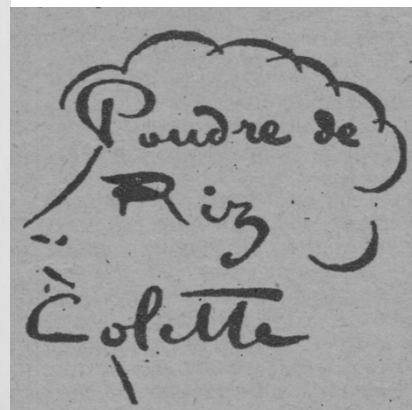 Poudre de
Riz
Colette